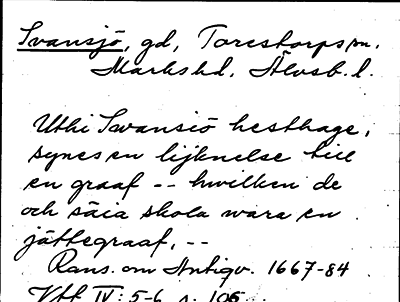 Svansjö, gd, Torestorps sn.
Marks hd, Älvsb. l.
Uthi Swansiö hesthage,
synes en lijknelse till
en graaf -- hwilken de
och säia skola wara en
jättegraaf, --
Rans. om Antiqv. 1667-84
Vtt IV: 5-6, s. 105